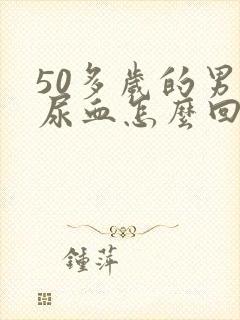 50多歲的男
尿血怎麼回
鍾萍